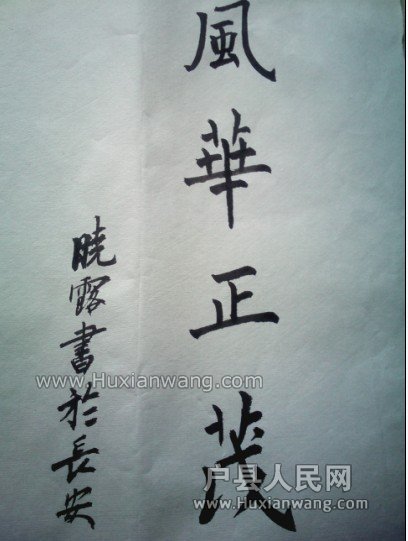 風華正茂
暁露書於長安
www.Huxianwang.com
户县人民网
www.Huxianwang.com